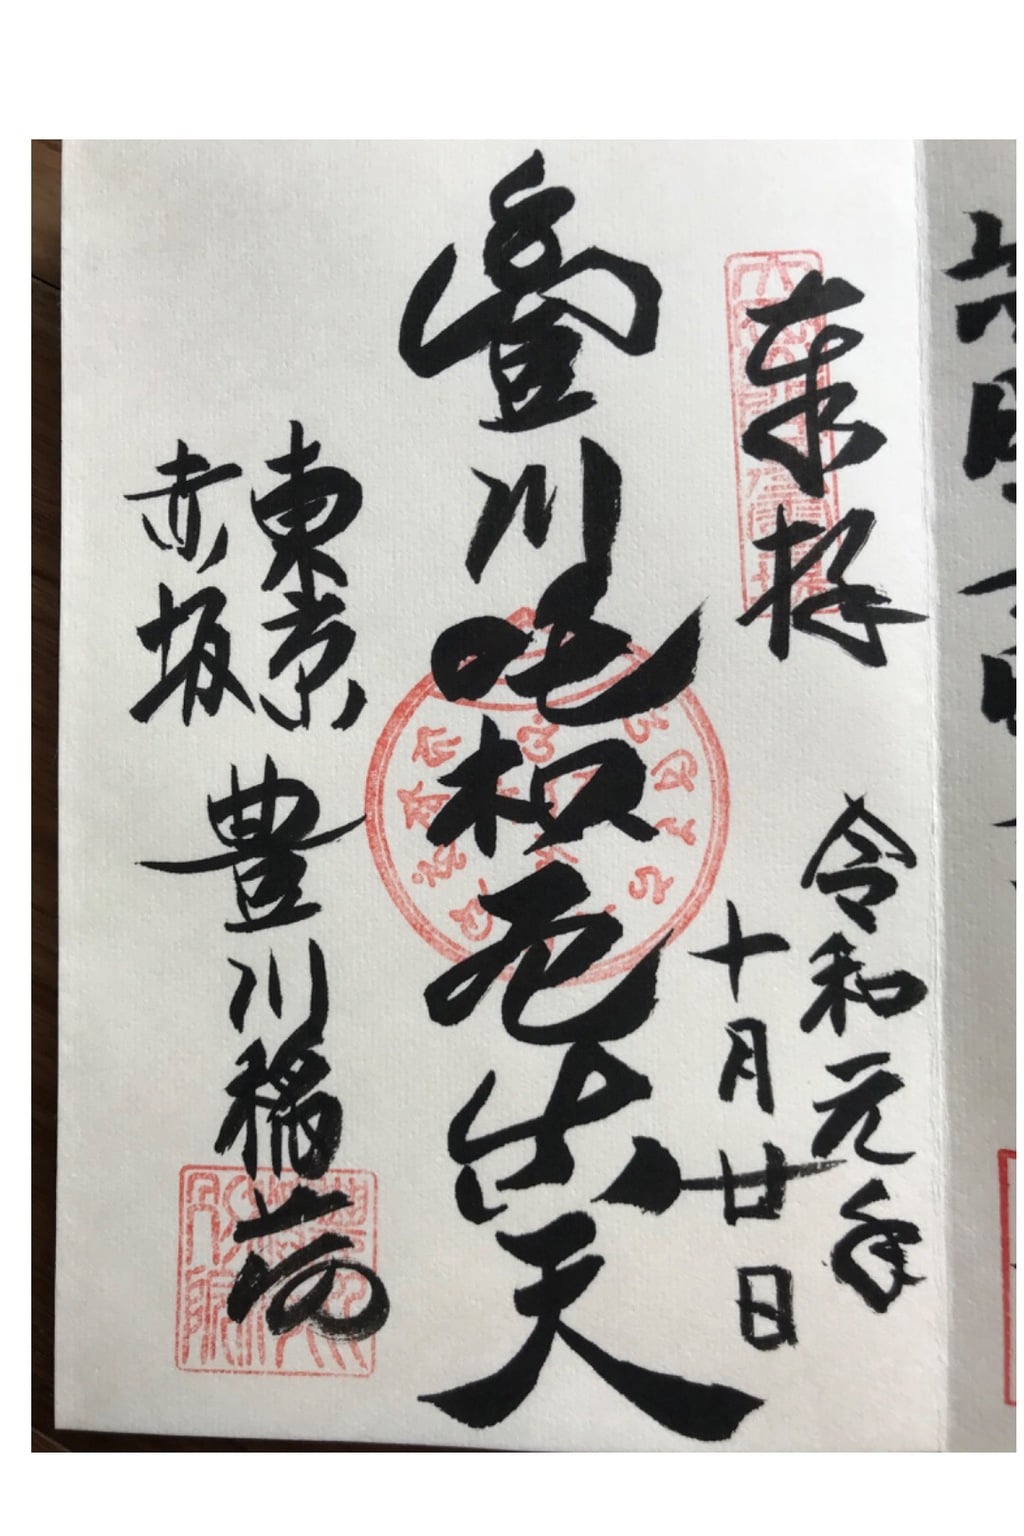 奉拝
令和元年
十月廿日
豊川吒枳尼真天
東京
赤坂
豊川稲荷